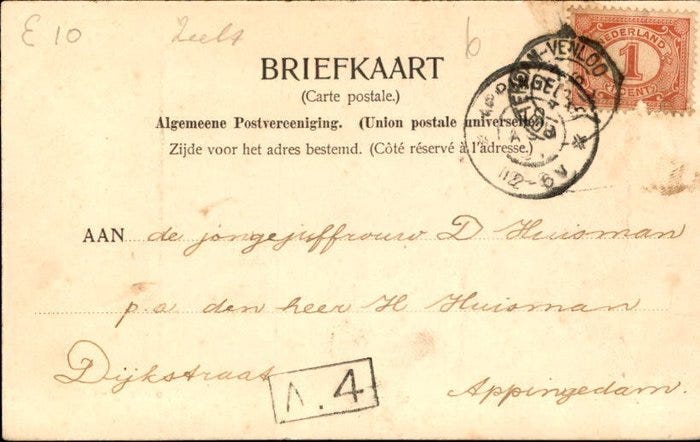 E 10
Zeelt
b
NEDERLAND
1
CENT
BRIEFKAART
(Carte postale.)
Algemeene Postvereeniging. (Union postale universelle.)
Zijde voor het adres bestemd. (Côté réservé à l'adresse.)
-VENLOO
12-6V
AAN de jongejuffrouw D Huisman
p. a den heer H Huisman
Dijkstraat
Appingedam.
A. 4